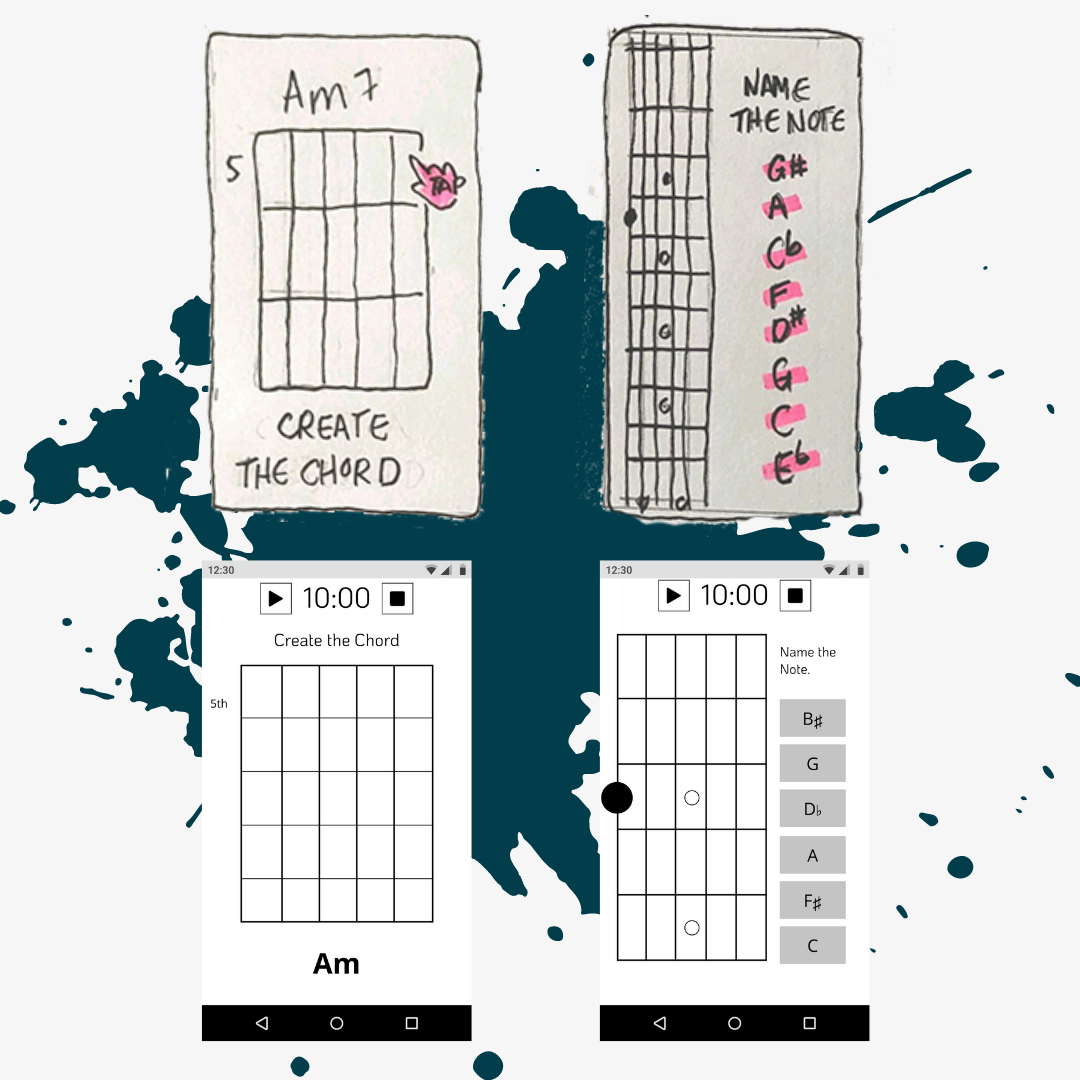 Am7
5
TAP
CREATE
THE CHORD
NAME
THE NOTE
G#
A
Cb
F
D#
G
C
Eb
12:30
10:00
Create the Chord
5th
Am
12:30
10:00
Name the
Note.
B♯
G
D♭
A
F♯
C